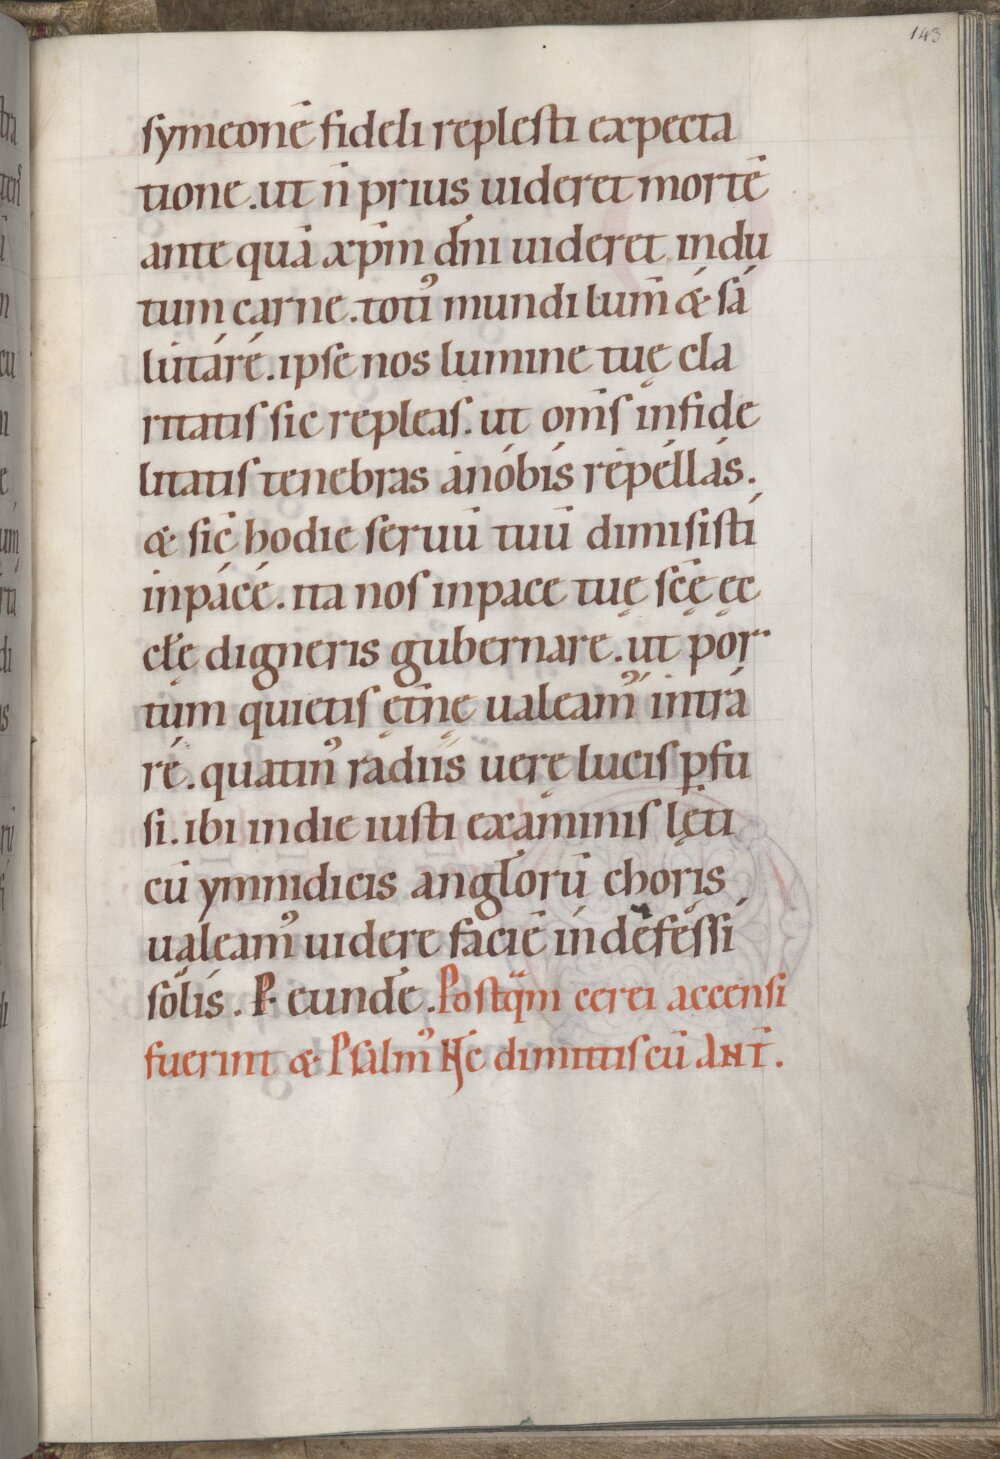 143
symeonē fideli replesti expecta
tione. ut n̄ prius uideret mortē
ante quā xp̄m dn̄i uideret indu
tum carne. toti᾿ mundi lum̄ & sá
lutáré. ipse nos lumine tuę cla
ritatis sic repleas. ut om̄s infide
litatis tenebras ánóbís répélláś.
& sic̄ hodie seruū tuū dimisistí
inpácé. ita nos inpace tuę sc̄ę ęc
clę̄ digneris gubernare. ut pór
tum quietis ęt̄nę ualeam᾿ intrá
ré. quatin᾿ radiis uerę lucis ꝑfu
si. ibi indie iusti examinis lęti
cū ymnidicis anglorū choris
ualeam᾿ uidere faciē índéféssí
sólís. P. eundē. Postqm̄ cerei accensi
fuerint & Psalm᾿ Nc̄ dimittis cū ANT̄.